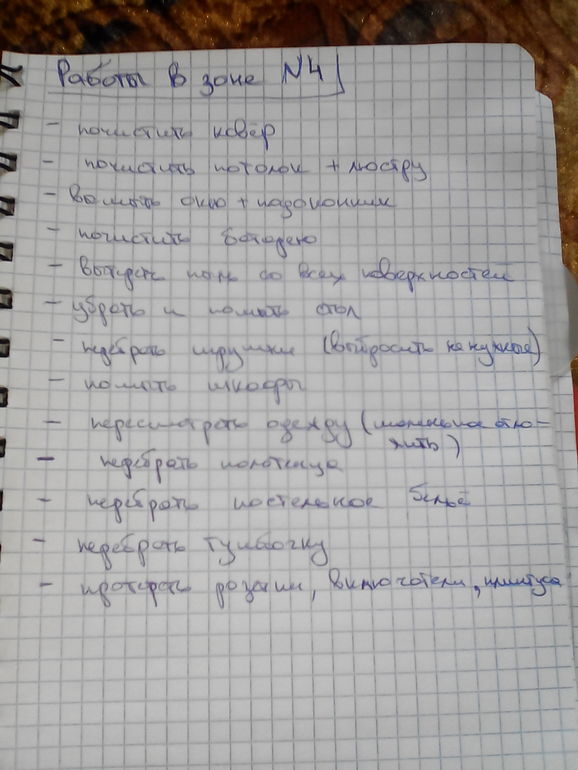 Работы в зоне №4
- почистить ковёр
- почистить потолок + люстру
- вымыть окно + подоконник
- почистить батарею
- вытереть пыль со всех поверхностей
- убрать и помыть стол
- перебрать игрушки (выбросить не нужные)
- помыть шкафы
- пересмотреть одежду (маленькое отло-
жить)
- перебрать полотенца
- перебрать постельное бельё
- перебрать тумбочку
- протереть розетки, включатели, плинтуса